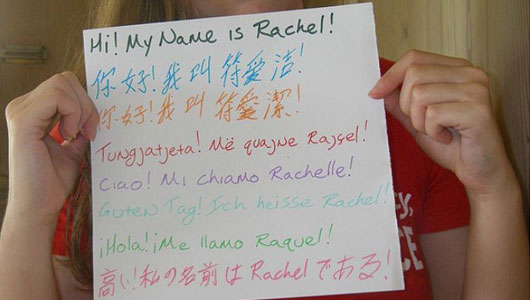 Hi! My Name is Rachel!
你好!我叫符爱洁!
你好!我叫符愛潔!
Tungjatjeta! Më quajne Rajsel!
Ciao! Mi chiamo Rachelle!
Guten Tag! Ich heisse Rachel!
¡Hola! ¡Me llamo Raquel!
高い!私の名前は Rachel である!